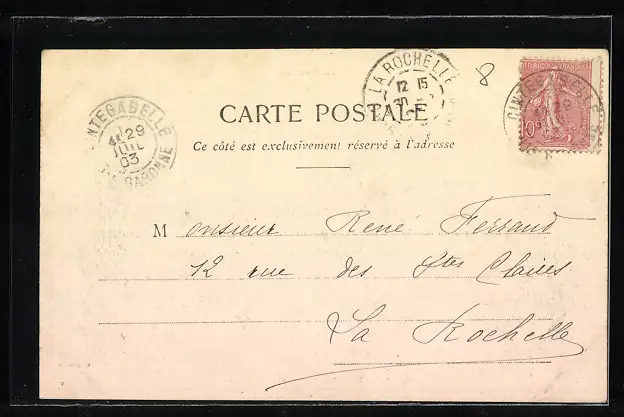 LA ROCHELLE
12 15
8
REPUBLIQUE FRANÇAISE
10c
CINTEGABELLE
CARTE POSTALE
Ce côté est exclusivement réservé à l'adresse
CINTEGABELLE
29
JUIL
03
GARONNE
Monsieur René Ferrand
12 rue des Stes Claires
La Rochelle